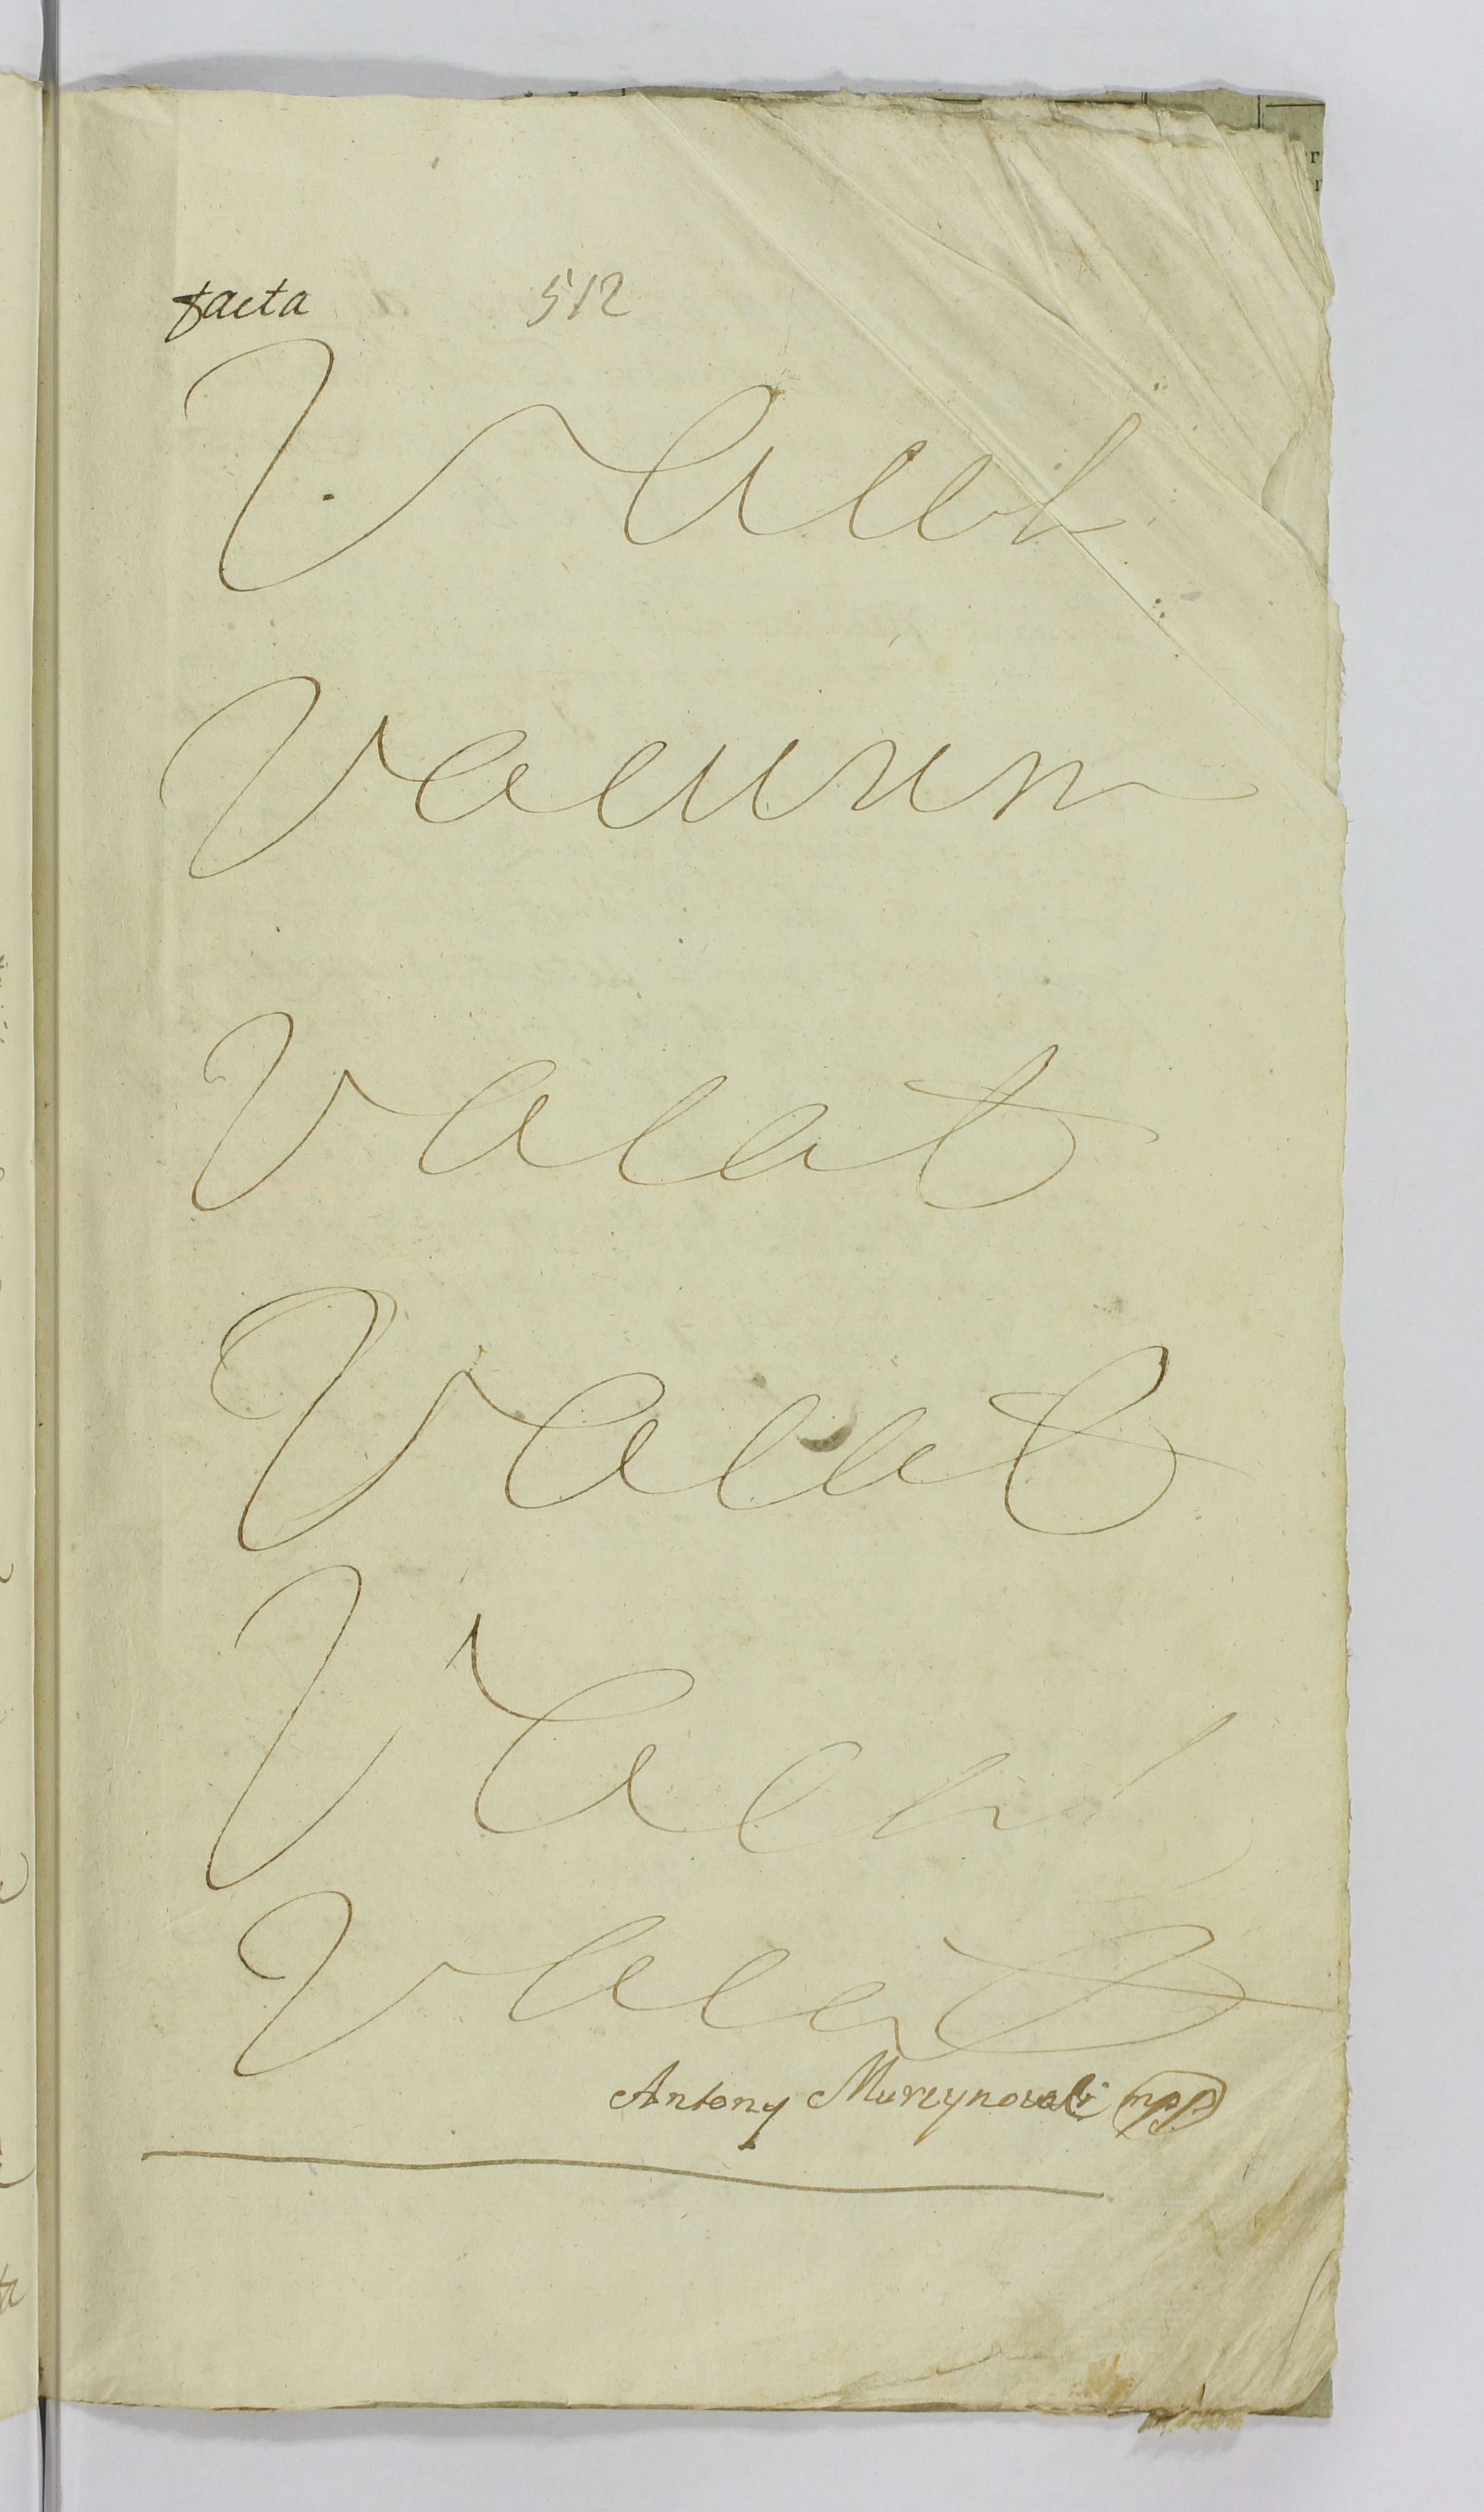 facta 512
Vacat
Vacuum
Vacat
Vacat
Vacat
Vacat
Antony Murzynowski mpp